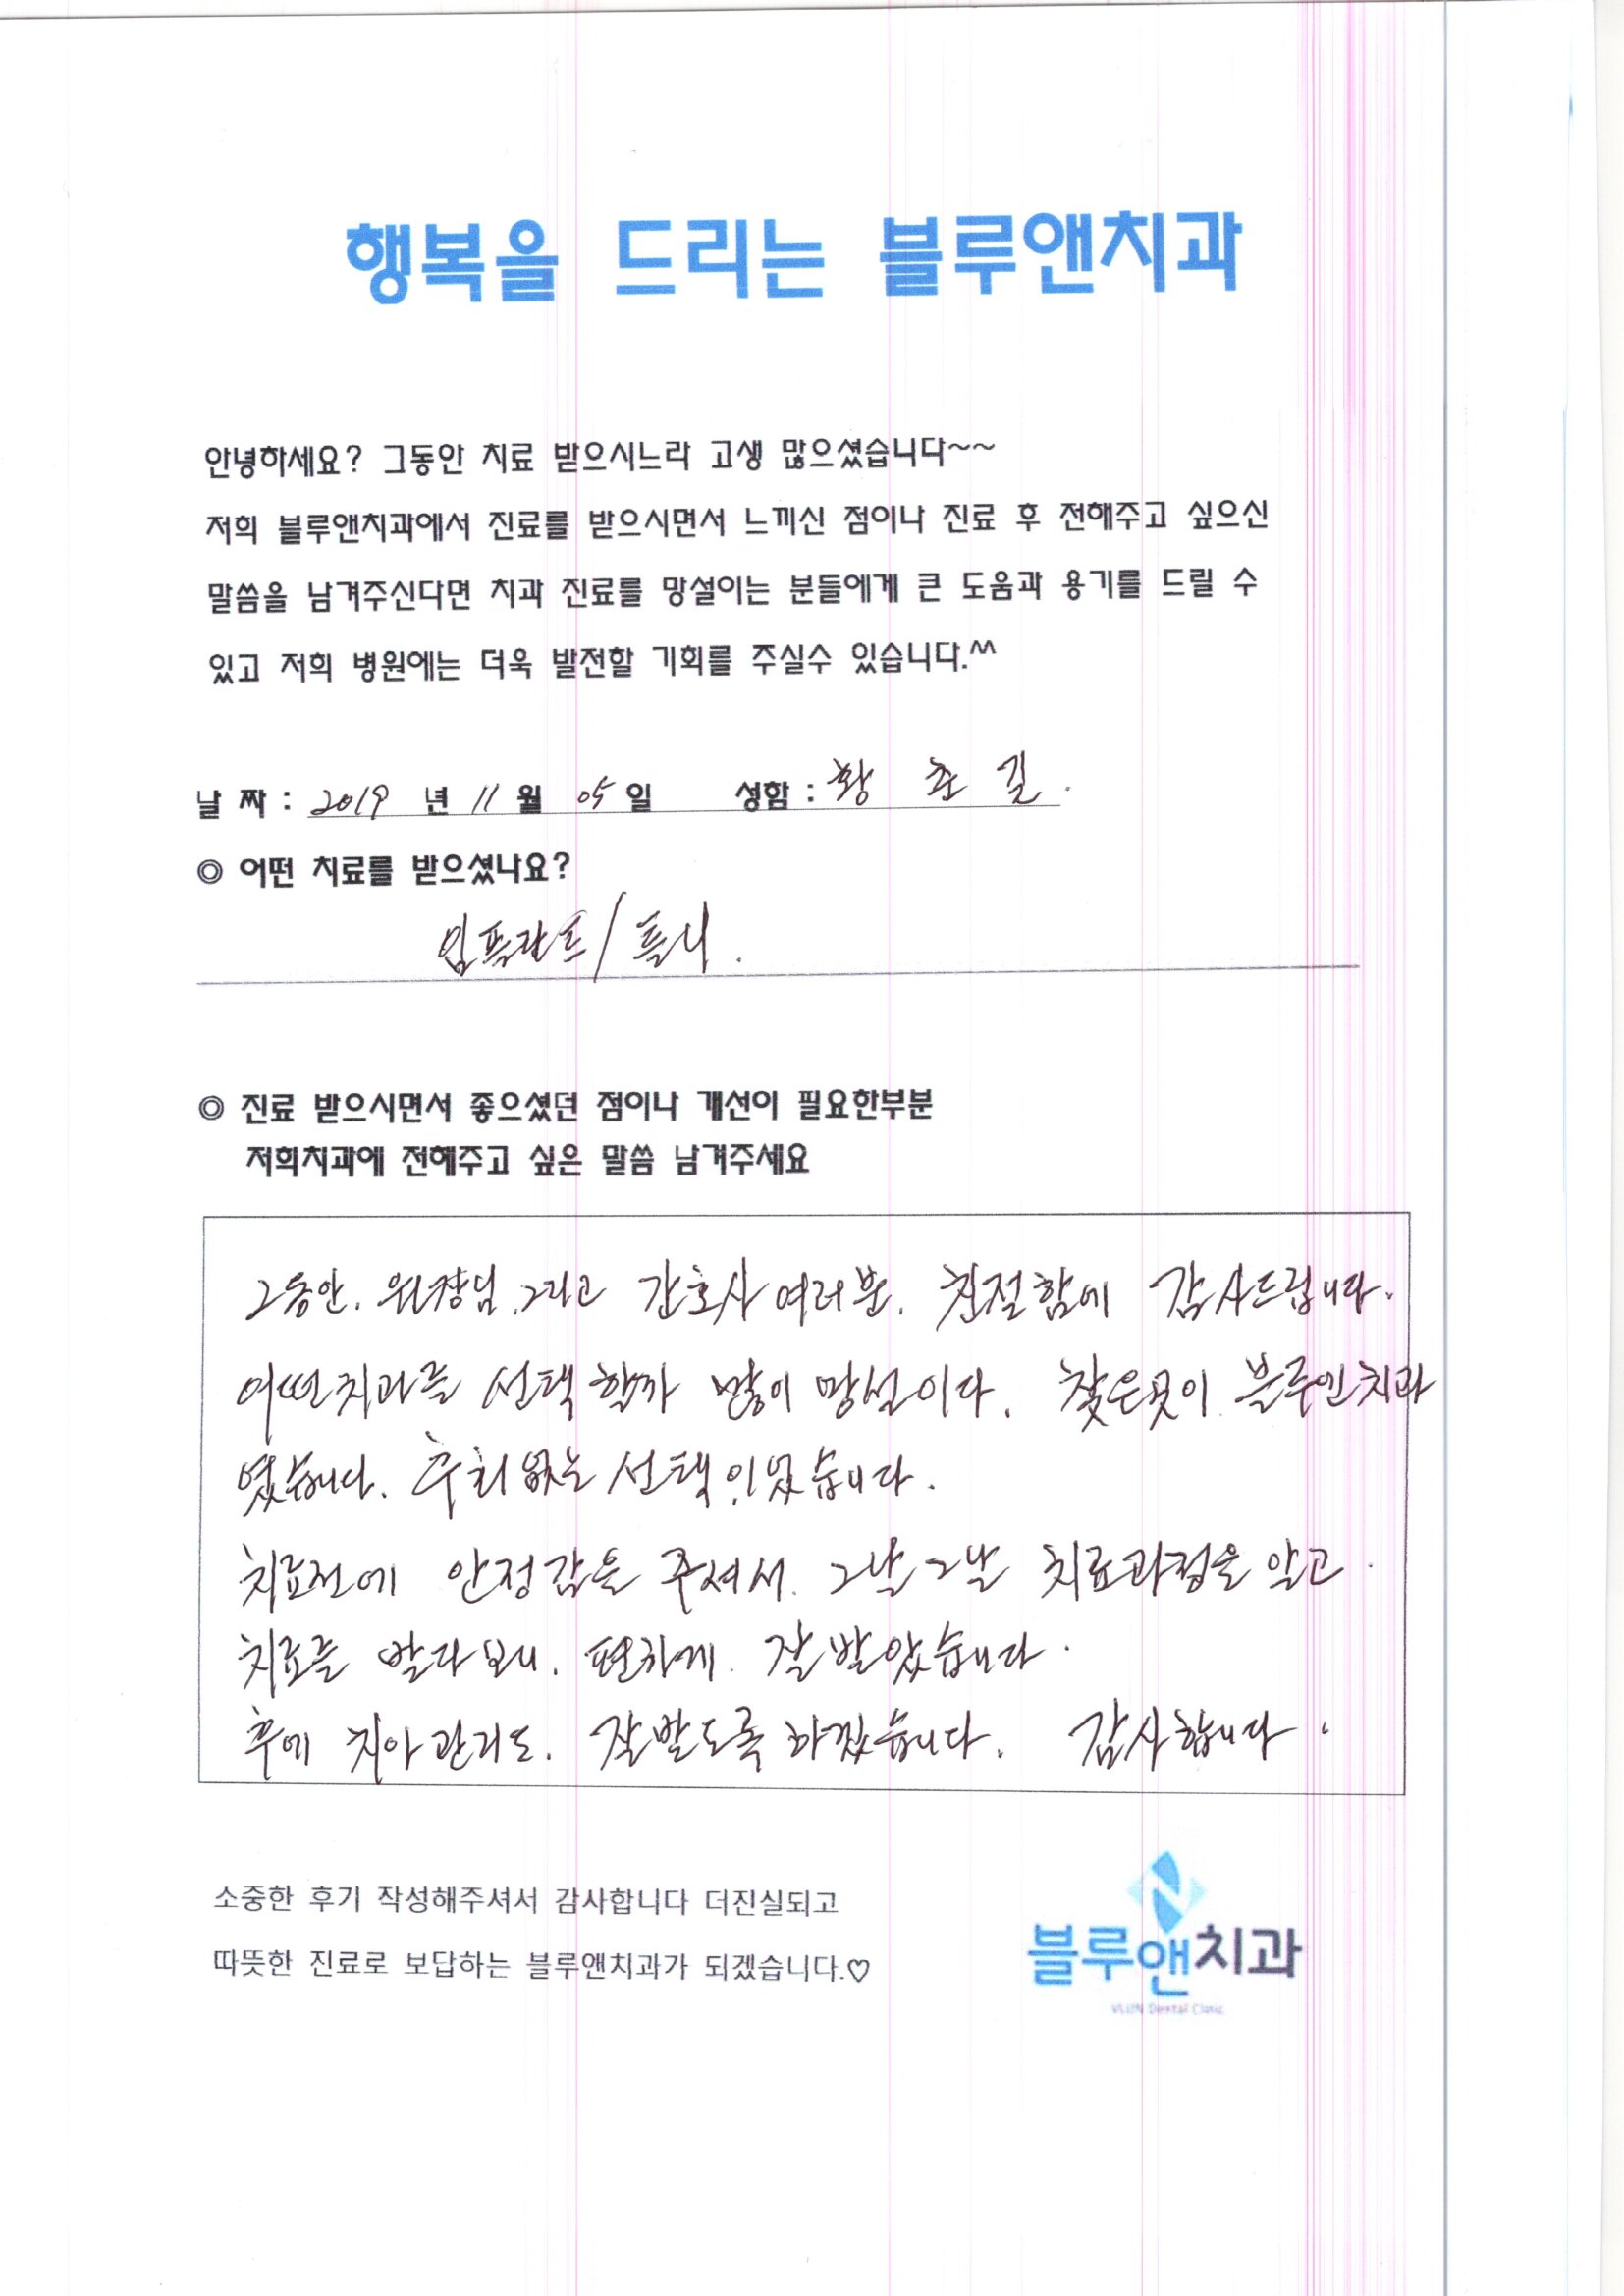 행복을 드리는 블루앤치과
안녕하세요? 그동안 치료 받으시느라 고생 많으셨습니다~~
저희 블루앤치과에서 진료를 받으시면서 느끼신 점이나 진료 후 전해주고 싶으신
말씀을 남겨주신다면 치과 진료를 망설이는 분들에게 큰 도움과 용기를 드릴 수
있고 저희 병원에는 더욱 발전할 기회를 주실수 있습니다.^^
날 짜 : 2019 년 11 월 05 일 성함 : 황 춘 길.
◎ 어떤 치료를 받으셨나요?
임플란트/틀니.
◎ 진료 받으시면서 좋으셨던 점이나 개선이 필요한부분
저희치과에 전해주고 싶은 말씀 남겨주세요
그동안. 원장님.그리고 간호사 여러분. 친절함에 감사드립니다.
어떤치과를 선택할까 많이 망설이다. 찾은곳이 블루앤치과
였습니다. 후회없는 선택이었습니다.
치료전에 안정감을 주셔서. 그날그날 치료과정을 알고.
치료를 받다보니. 편하게. 잘받았습니다.
후에 치아관리도. 잘받도록하겠습니다. 감사합니다.
소중한 후기 작성해주셔서 감사합니다 더진실되고
따뜻한 진료로 보답하는 블루앤치과가 되겠습니다.♡
블루앤치과
VLUN Dental Clinic